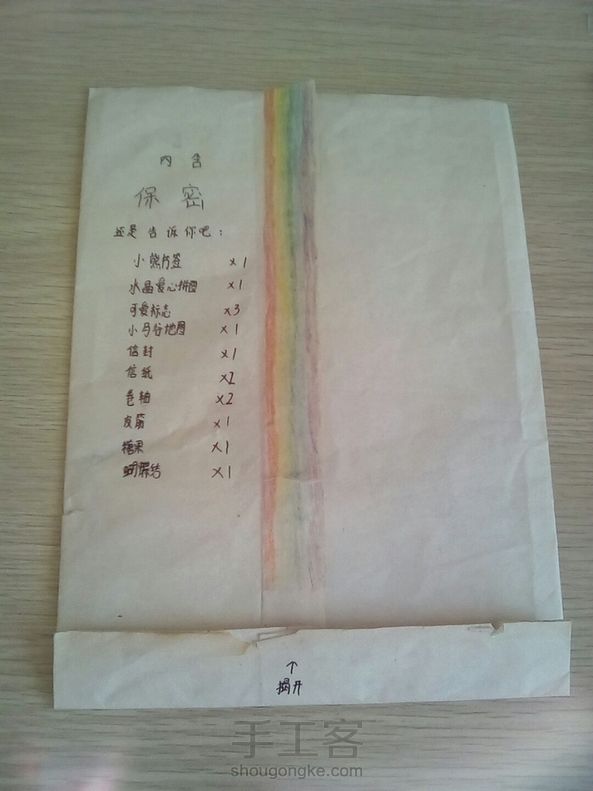 内含
保密
还是告诉你吧:
小熊书签 x1
水晶爱心拼图 x1
可爱标志 x3
小马谷地图 x1
信封 x1
信纸 x2
卷轴 x2
皮筋 x1
糖果 x1
蝴蝶结 x1
↑
揭开
手工客
shougongke.com